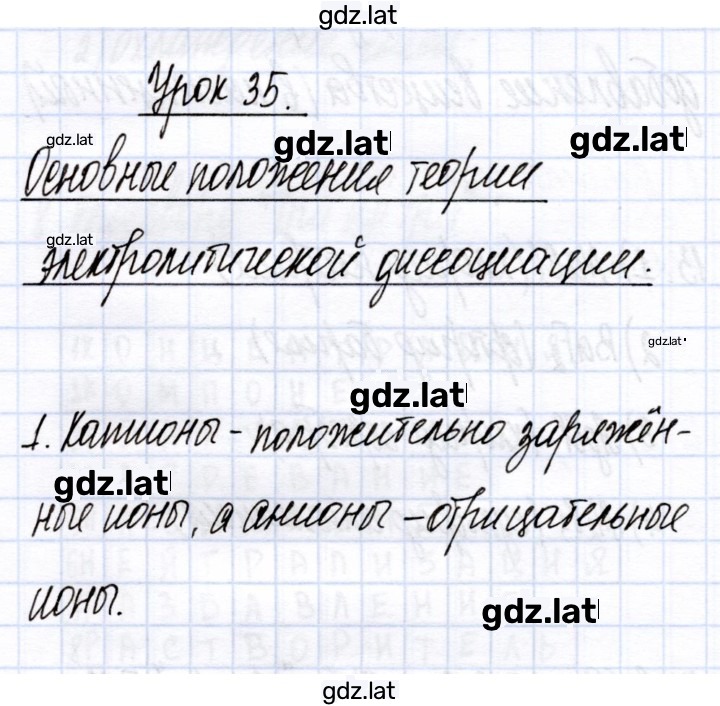 gdz.lat
Урок 35.
gdz.lat gdz.lat gdz.lat
Основные положения теории
gdz.lat
электролитической диссоциации.
gdz.lat
gdz.lat
1. Катионы - положительно заряжён-
gdz.lat
ные ионы, а анионы - отрицательные
ионы.
gdz.lat
gdz.lat